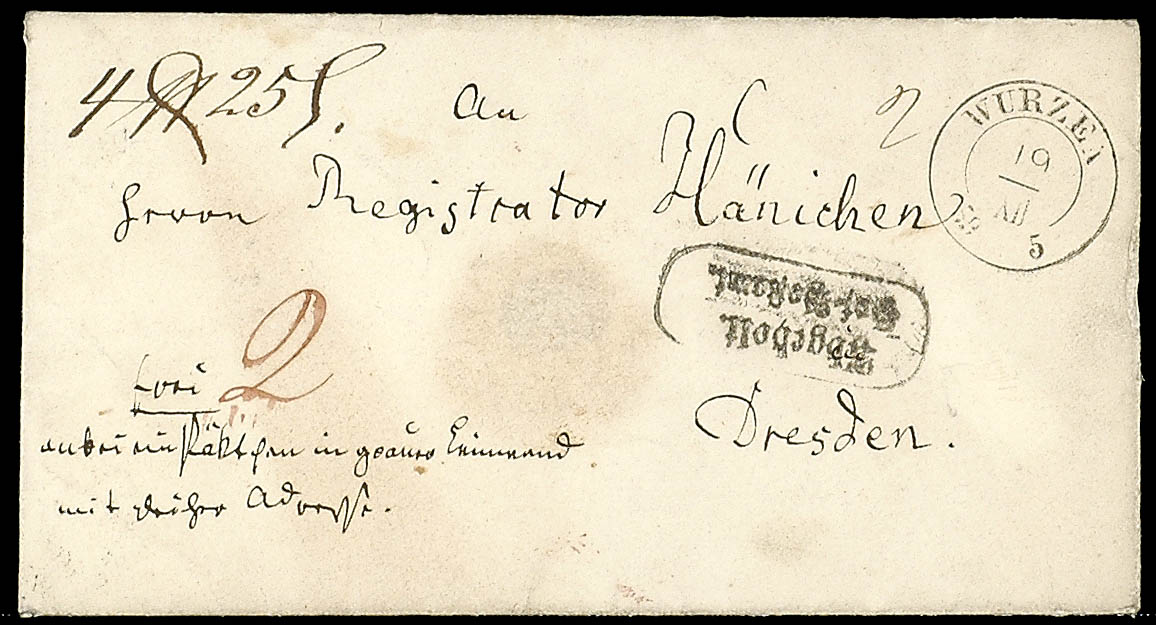 4 ℔ 25 L.
An
2
Herrn Registrator Hänichen
WURZEN
19
XII
5
Abgeholt
Frei
2
anbei ein Päktchen in grauer Leinwand
mit gleicher Adresse.
Dresden.